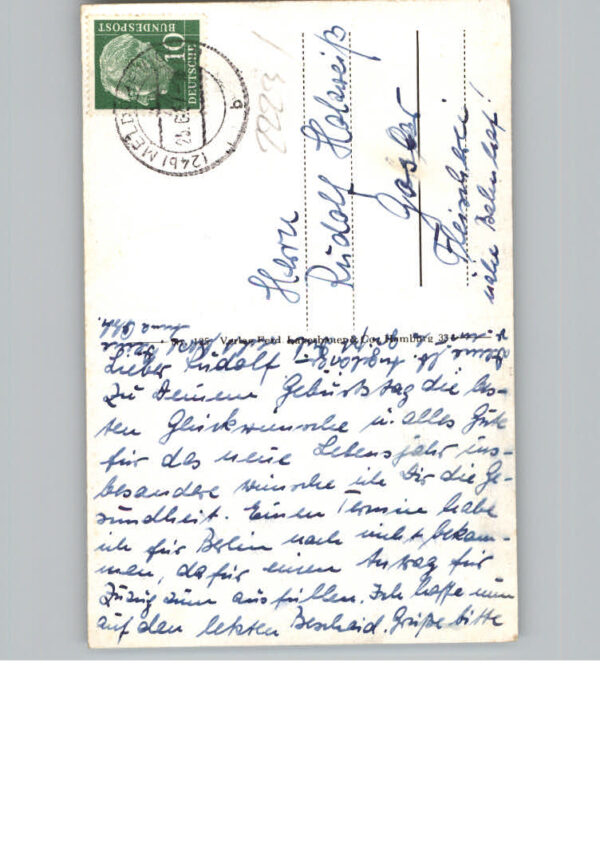 10
DEUTSCHE
BUNDESPOST
(24b) MELD
2223 /
Herrn
Rudolf Holzweiß
Goslar
Fleischerei
nähe Bahnhof!
Nr. 185 Verlag Ferd. Lagerbauer & Co., Hamburg 33
Lieber Rudolf!
Zu Deinem Geburtstag die bes-
ten Glückwünsche u. alles Gute
für das neue Lebensjahr ins-
besondere wünsche ich Dir die Ge-
sundheit. Einen Termin habe
ich für Berlin noch nicht bekom-
men, dafür einen Antrag für
Zuzug zum ausfüllen. Ich hoffe nun
auf den letzten Bescheid. Grüße bitte